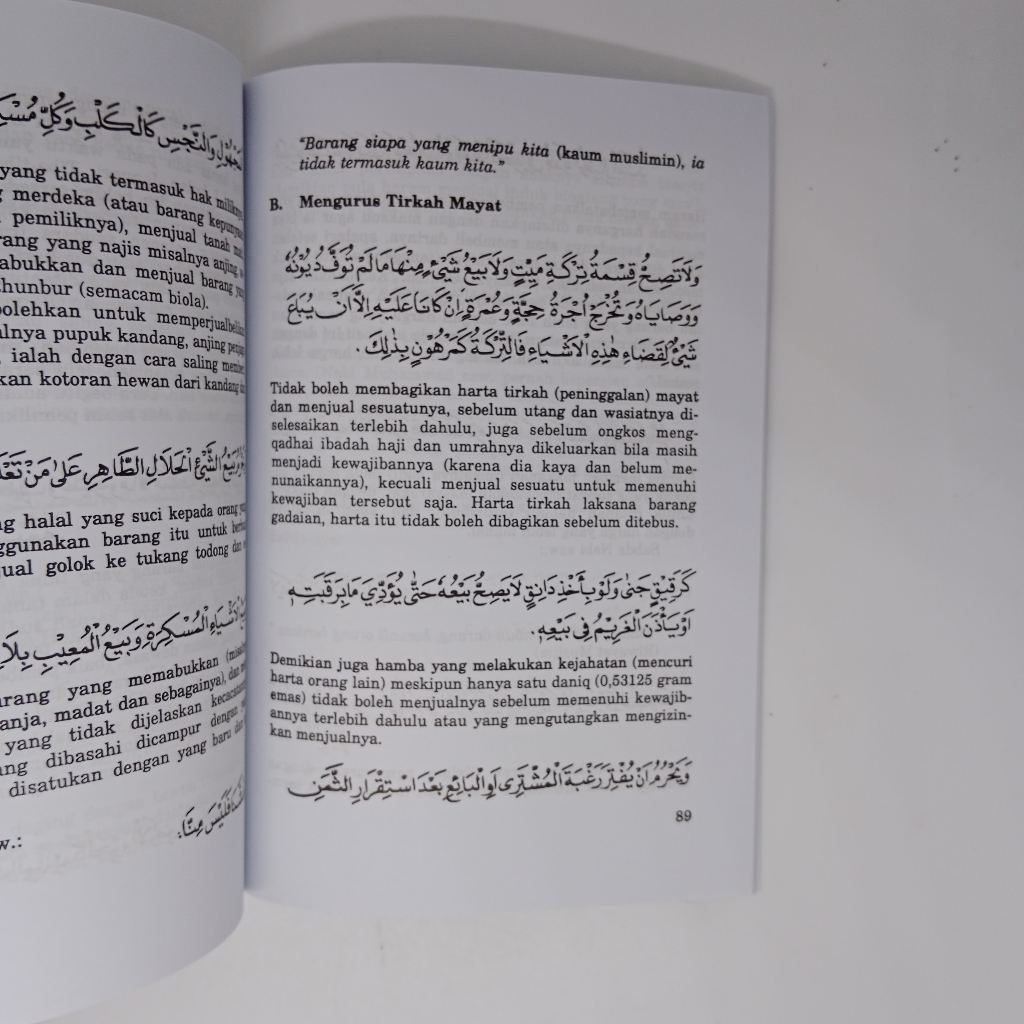 وَالنَّجْسِ كَالْكَلْبِ وَكُلِّ
yang tidak termasuk hak
merdeka (atau barang
pemiliknya), menjual tanah
yang najis misalnya anjing
dan menjual barang
(semacam biola).
untuk
pupuk kandang, anjing
, ialah dengan cara saling
kotoran hewan dari kandang
الشَّيْءِ الْحَلَالِ الطَّاهِرِ عَلَى مَنْ
halal yang suci kepada orang
barang itu untuk
golok ke tukang todong dan
الْمُسْكِرَةِ وَبَيْعُ الْمَعِيْبِ بِلَا
yang memabukkan
, madat dan sebagainya), dan
yang tidak dijelaskan
dibasahi dicampur dengan
disatukan dengan yang baru
فَلَيْسَ مِنَّا.
w.:
"Barang siapa yang menipu kita (kaum muslimin), ia
tidak termasuk kaum kita."
B. Mengurus Tirkah Mayat
وَلَا تَصِحُّ قِسْمَةُ تِرْكَةِ مَيِّتٍ وَلَا بَيْعُ شَيْءٍ مِنْهَا مَا لَمْ تُوَفَّ دُيُوْنُهُ
وَوَصَايَاهُ وَتُخْرَجْ أُجْرَةُ حِجَّةٍ وَعُمْرَةٍ إِنْ كَانَا عَلَيْهِ إِلَّا أَنْ يُبَاعَ
شَيْءٌ لِقَضَاءِ هٰذِهِ الْأَشْيَاءِ فَالتِّرْكَةُ كَمَرْهُوْنٍ بِذٰلِكَ.
Tidak boleh membagikan harta tirkah (peninggalan) mayat
dan menjual sesuatunya, sebelum utang dan wasiatnya di-
selesaikan terlebih dahulu, juga sebelum ongkos meng-
qadhai ibadah haji dan umrahnya dikeluarkan bila masih
menjadi kewajibannya (karena dia kaya dan belum me-
nunaikannya), kecuali menjual sesuatu untuk memenuhi
kewajiban tersebut saja. Harta tirkah laksana barang
gadaian, harta itu tidak boleh dibagikan sebelum ditebus.
كَرَقِيْقٍ جَنَى وَلَوْ بِأَخْذِ دَانِقٍ لَا يَصِحُّ بَيْعُهُ حَتَّى يُؤَدِّيَ مَا بِرَقَبَتِهِ
أَوْ يَأْذَنَ الْغَرِيْمُ فِي بَيْعِهِ.
Demikian juga hamba yang melakukan kejahatan (mencuri
harta orang lain) meskipun hanya satu daniq (0,53125 gram
emas) tidak boleh menjualnya sebelum memenuhi kewajib-
annya terlebih dahulu atau yang mengutangkan mengizin-
kan menjualnya.
وَيَحْرُمُ أَنْ يُفَتِّرَ رَغْبَةَ الْمُشْتَرِى أَوِ الْبَائِعِ بَعْدَ اسْتِقْرَارِ الثَّمَنِ
89